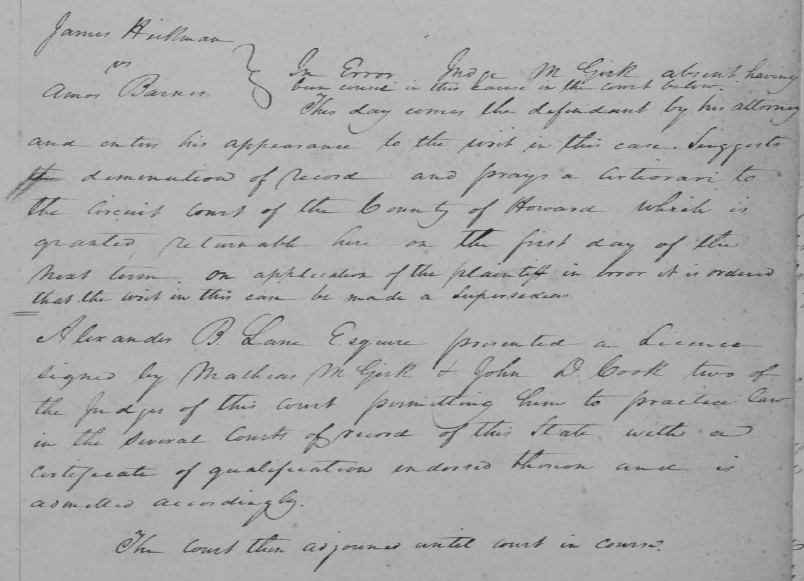 James Hickman
vs
Amos Barnes
In Error Judge McGirk absent having
been councel in this cause in the court below.
This day comes the defendant by his attorney
and enters his appearance to the writ in this case. Suggests
the deminution of record and prays a certiorari to
the Circuit court of the County of Howard which is
granted, returnable here on the first day of the
next term. on application of the plaintiff in error it is ordered
that the writ in this case be made a Supersedeas
Alexander B. Lane Esquire presented a Licence
signed by Mathias McGirk & John D. Cook two of
the Judges of this court permitting him to practice law
in the several Courts of record of this State with a
certificate of qualification endorsed thereon and is
admitted accordingly.
The court then adjourned until court in course.